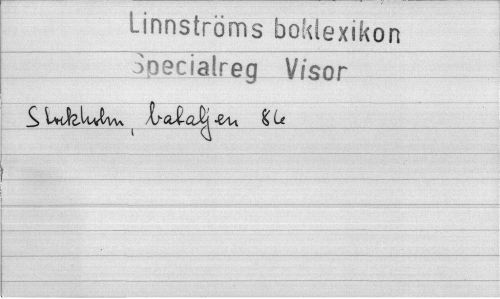 Linnströms boklexikon
Specialreg Visor
Stockholm, bataljen